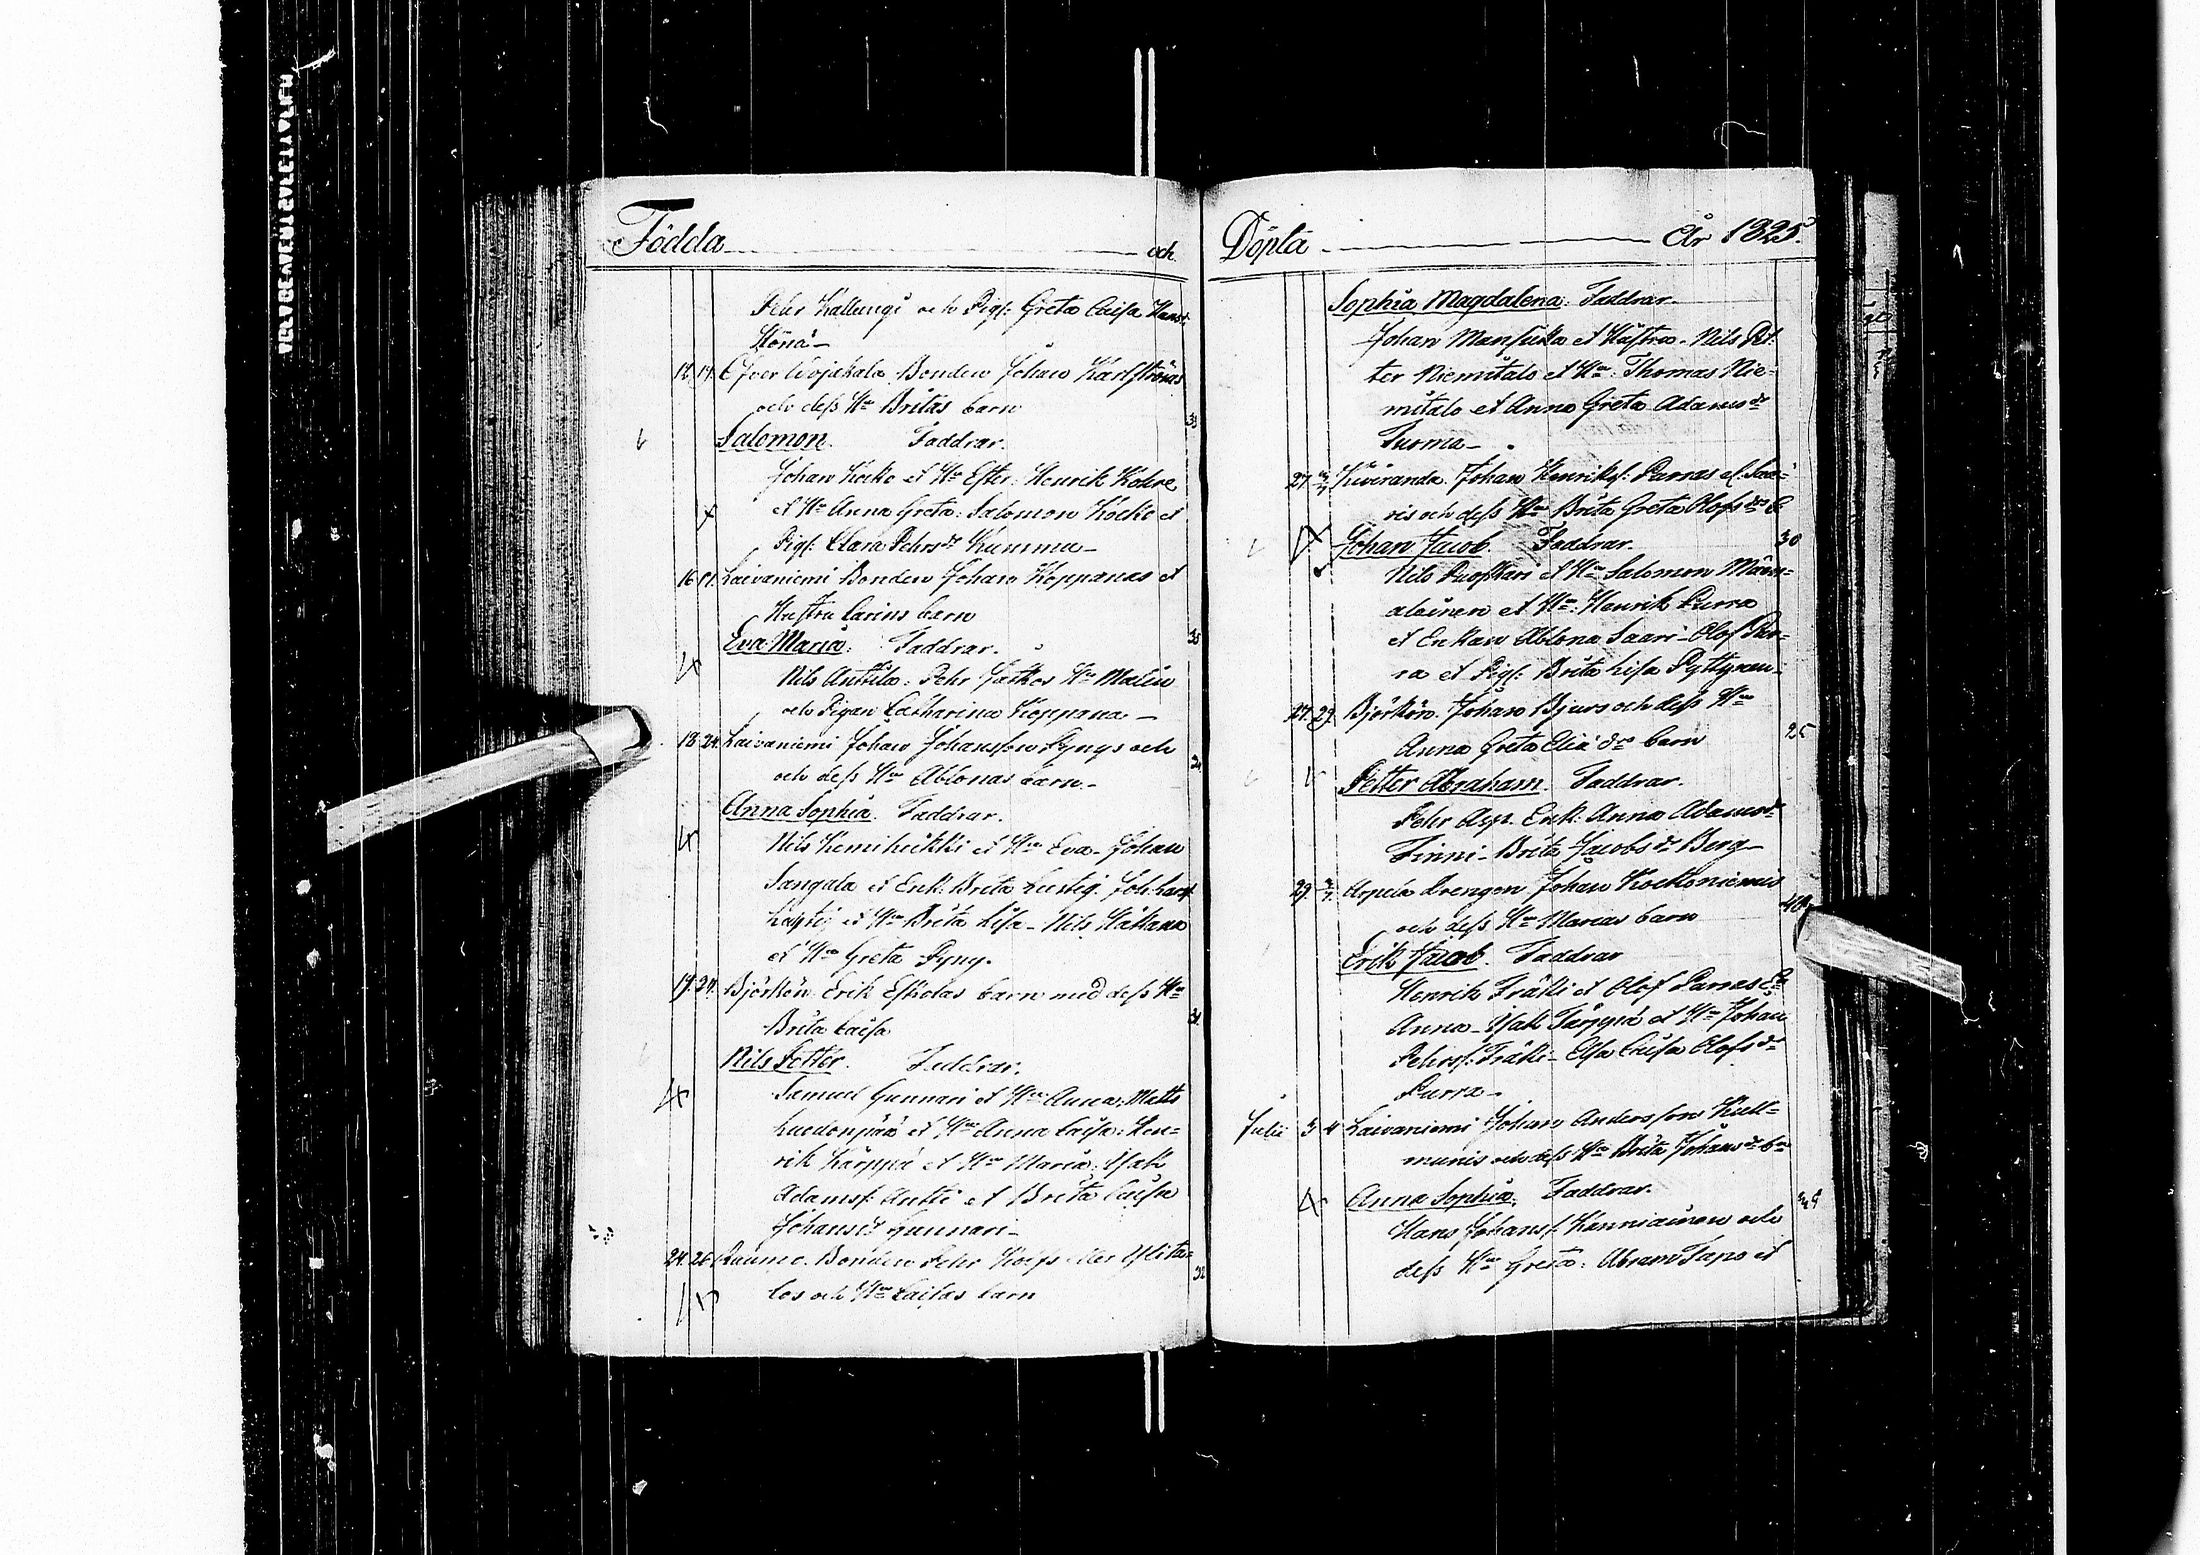 Födda och
Pehr Kallungi och Pig: Greta Caisa Hans
12 14. Öfver Vojakala Bonden Johan Karlströms
och dess Hu Britas barn
33
Salomon. Faddrar.
Johan Köcko et Hu Ester: Henrik
et Hu Anna Greta: Salomon Köcko et
Pig: Clara Pehrsdr Kumma
16 Laivaniemi Bonden Johan Koppanas et
Hustru Carins barn
Eva Maria: Faddrar.
35
Nils Anttila: Pehr Hu Malin
och Pigan Catharina Koppana
18 24. Laivaniemi Johan Johansson Pyngs och
och dess Hu Ablonas barn
Anna Sophia. Faddrar.
Nils Kemiheikki et Hu Eva. Johan
Sangala et Enk: Brita Lustig. Joh:
et Hu Brita Lisa. Nils
et Hu Greta Pyng.
19. 24. Björkön Erik Eskolas barn med dess Hu
Brita Caisa
Nils Petter. Faddrar.
Samuel Gunnari et Hu Anna; Matts
Luodonpää et Hu Anna Caisa: Hen=
rik Kärppä et Hu Maria; Isak
Adamss: Antti et Brita Caisa
Johansdr Gunnari
24. 26 Raumo. Bonden Pehr
32
los och Hu Caisas barn
Döpta År 1825.
Sophia Magdalena: Faddrar.
Johan et Hustru. Nils Pet=
ter Niemitalo et Hu: Thomas Nie=
mitalo et Anna Greta Adamsdr
27. Kiviranda. Johan Henrikss: Parras el. Saa=
ris och dess Hu Brita Greta Olofsdrs b
30
Johan Jacob. Faddrar.
Nils et Hu Salomon
alainen et Hu: Henrik Purra
et Enkan Ablona Saari. Olof Pur=
ra et Pig: Brita Lisa
27. 29. Björkön. Johan Bjurs och dess Hu
Anna Greta Eliædrs barn
25
Petter Abraham. Faddrar.
Pehr Asp. Enk: Anna Adamsdr
Finni. Brita Jacobsdr Berg
29. Arpela Drengen Johan Kockoniemis
40
och dess Hu Marias barn
Erik Jacob. Faddrar
Henrik Träkki et Olof Parras
Anna. Isak Kärppä et Hu Johan
Pehrss: Träkki. Caisa Olofsdr
Purra
Julii 3 4 Laivaniemi Johan Andersson Kull=
munis och dess Hu Brita Johansdrs bn
Anna Sophia. Faddrar.
Hans Johanss: Kanniainen och
dess Hu Greta: Abram Tapio et